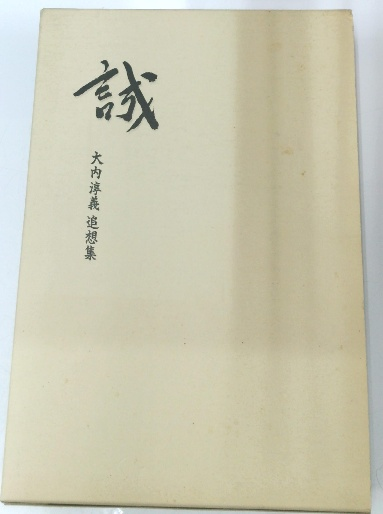 誠
大内淳義 追想集